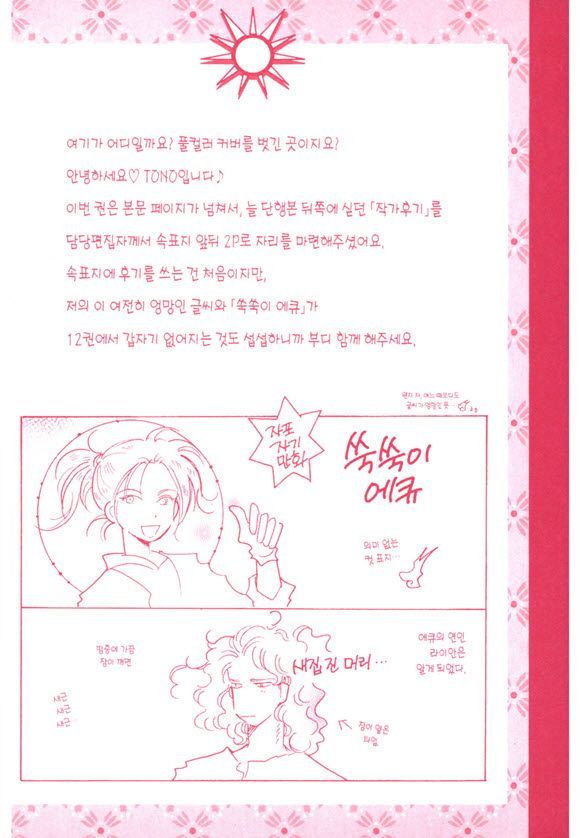 여기가 어디일까요? 풀컬러 커버를 벗긴 곳이지요?
안녕하세요♡ TONO입니다♪
이번 권은 본문 페이지가 넘쳐서, 늘 단행본 뒤쪽에 실던 「작가후기」를
담당편집자께서 속표지 앞뒤 2P로 자리를 마련해주셨어요.
속표지에 후기를 쓰는 건 처음이지만,
저의 이 여전히 엉망인 글씨와 「쑥쑥이 에큐」가
12권에서 갑자기 없어지는 것도 섭섭하니까 부디 함께 해주세요.
글씨가 엉망인 듯…
자포
자기
만화
쑥쑥이
에큐
의미 없는
컷 표지…
밤중에 가끔
잠이 깨면
새근
새근
새근…
새집 진 머리…
에큐의 연인
라이안은
알게 되었다.
잠이 얕은
타입